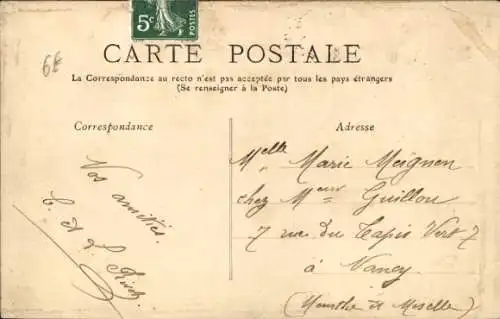 5c
POSTES
6E
CARTE POSTALE
La Correspondance au recto n'est pas acceptée par tous les pays étrangers
(Se renseigner à la Poste)
Correspondance
Vos amitiés.
C. et L.
Adresse
Melle Marie Meignen
chez Meur Guillou
7 rue du Tapis Vert 7
à Nancy
(Meurthe et Moselle)